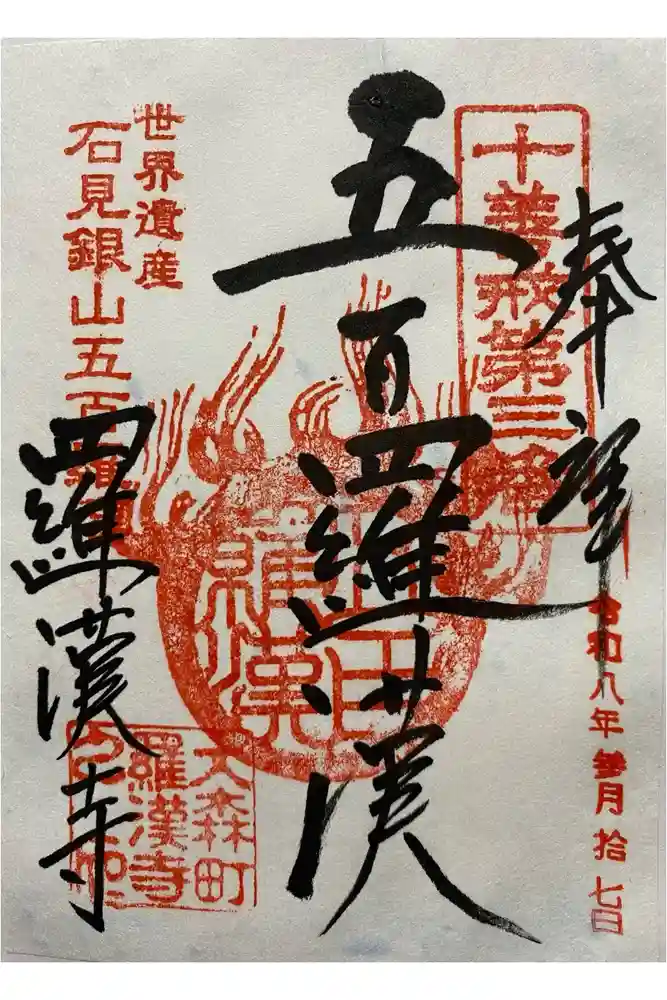 奉拝
十善戒第三番
令和八年参月拾七日
五百羅漢
五百羅漢
世界遺産
石見銀山五百羅漢
羅漢寺
大森町
羅漢寺